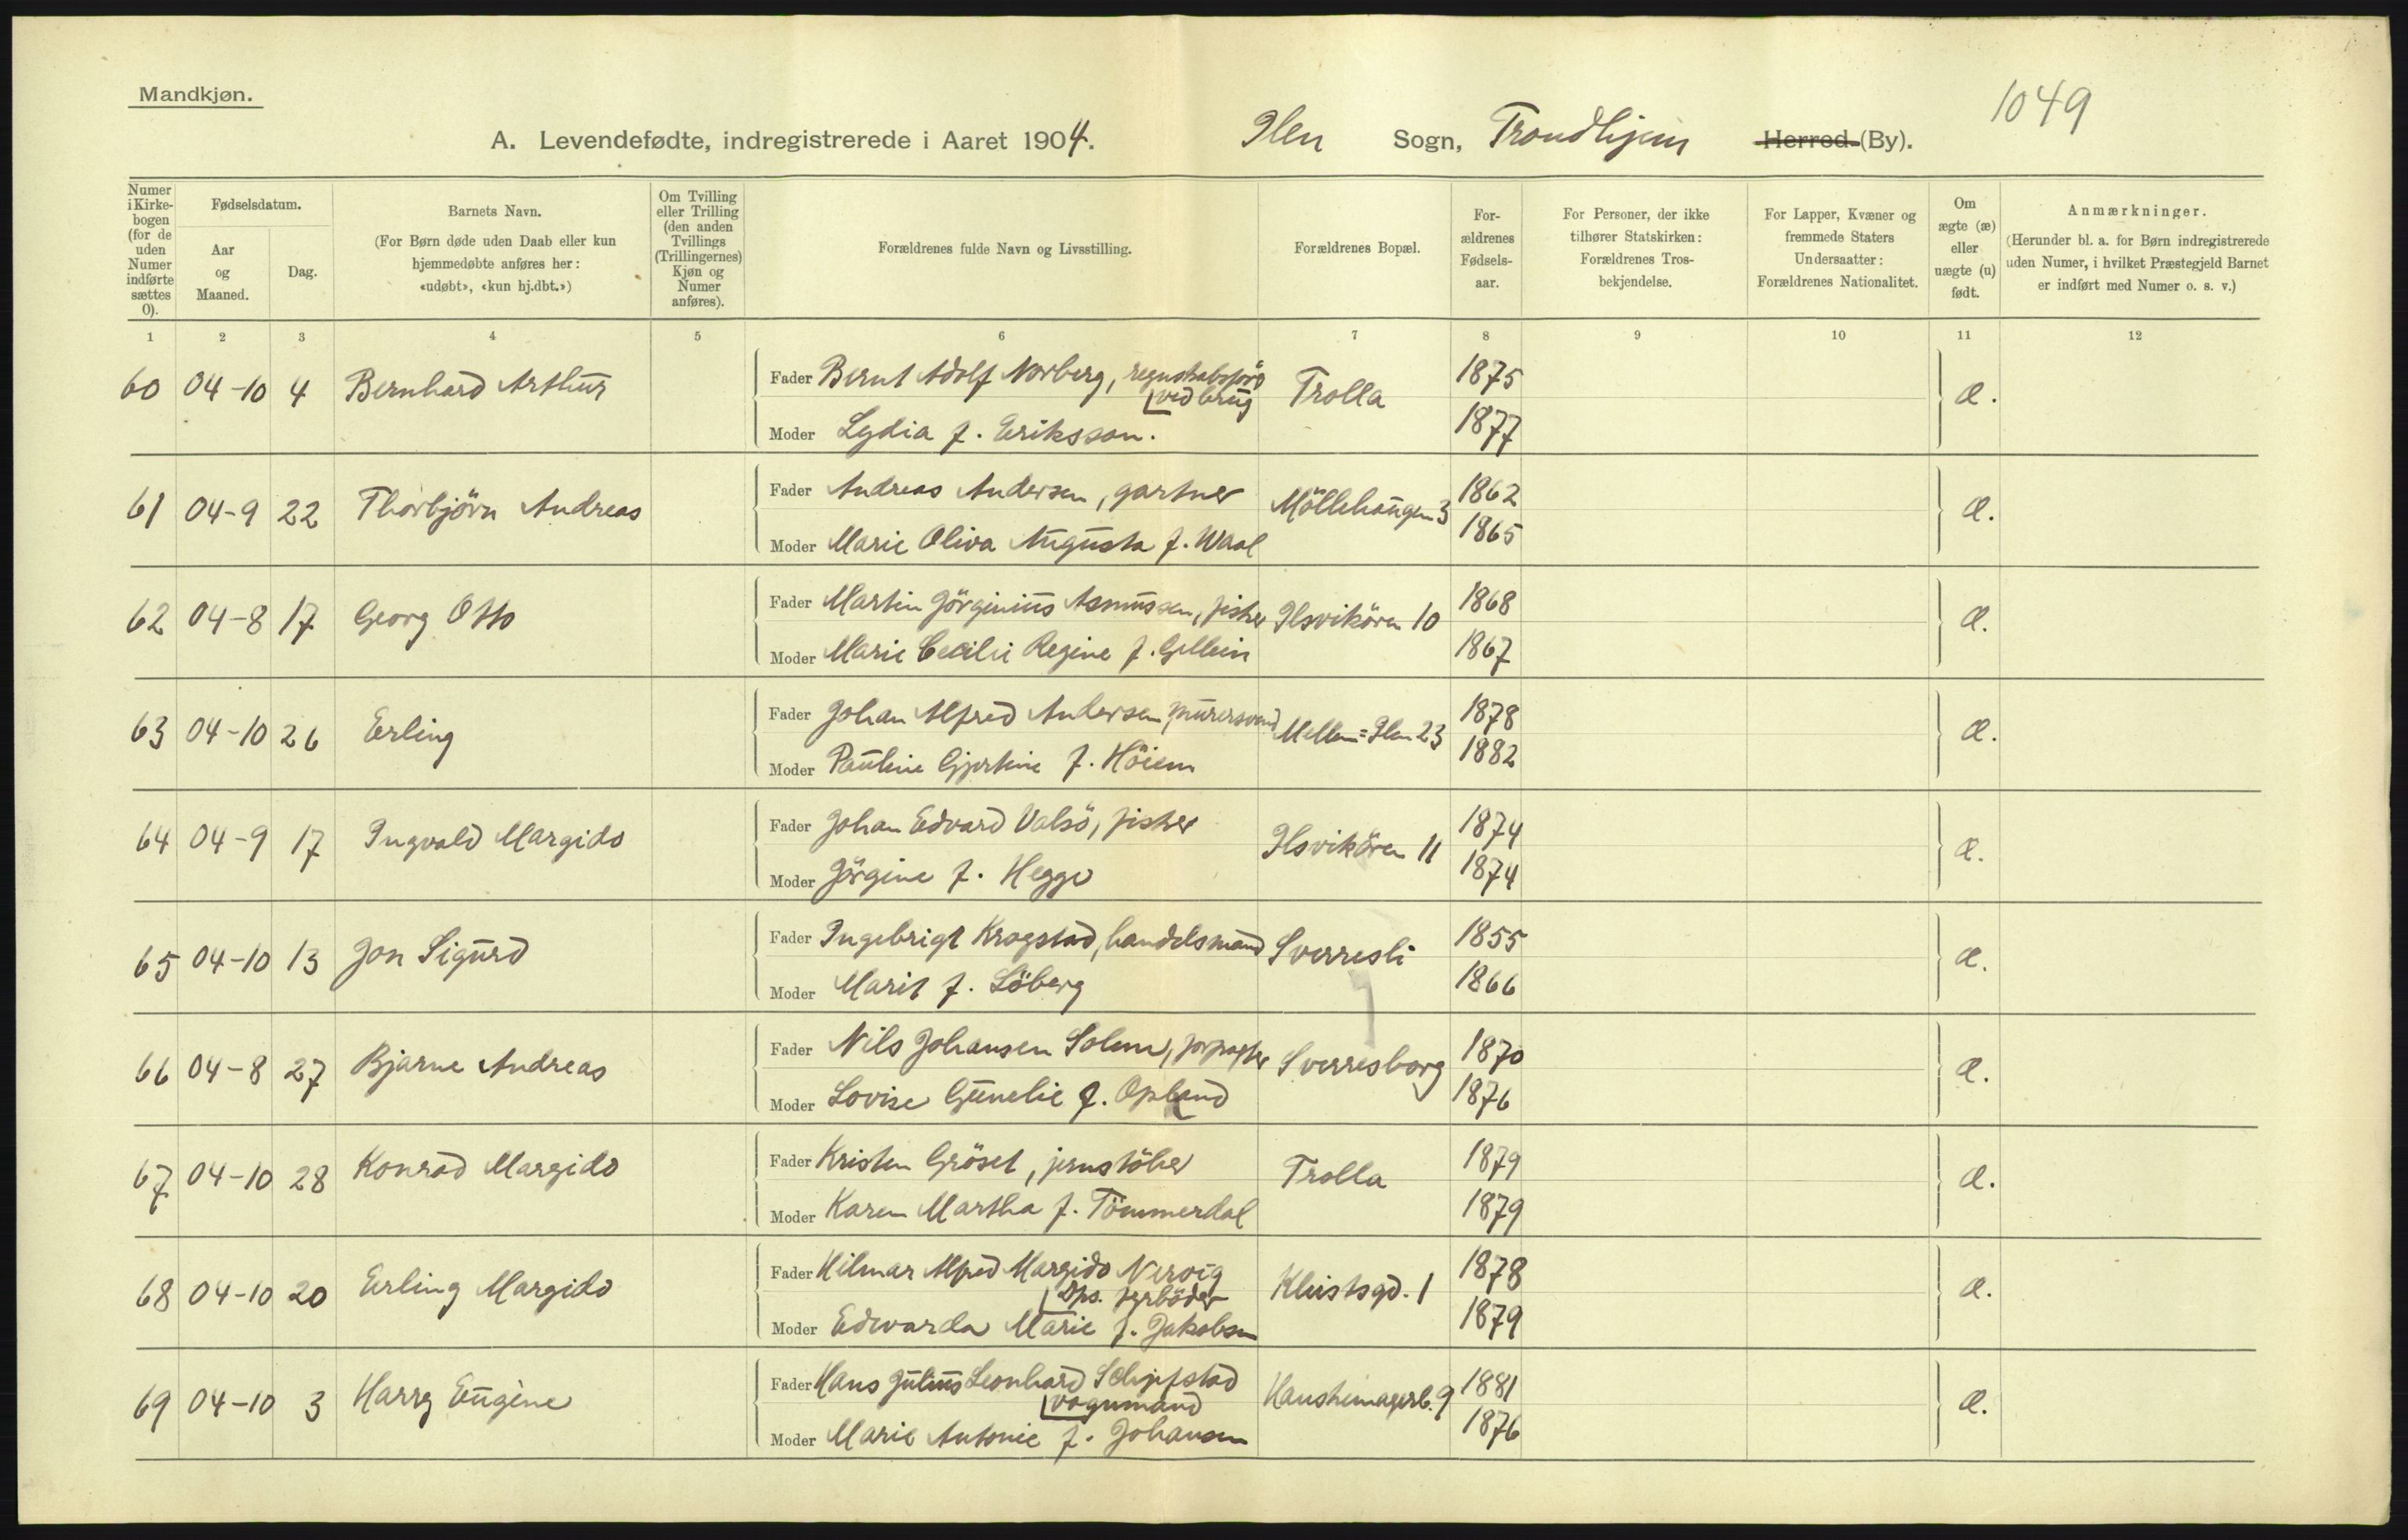 Mandkjøn.
1049
A. Levendefødte, indregistrerede i Aaret 1904. Ilen Sogn, Trondhjem Herred (By).
Numer i Kirke- bogen (for de uden Numer indførte sættes 0).
Fødselsdatum.
Aar og Maaned.
Dag.
Barnets Navn.
(For Børn døde uden Daab eller kun hjemmedøbte anføres her: «udøbt», «kun hj.dbt.»)
Om Tvilling eller Trilling (den anden Tvillings (Trillingernes) Kjøn og Numer anføres).
Forældrenes fulde Navn og Livsstilling.
Forældrenes Bopæl.
For- ældrenes Fødsels- aar.
For Personer, der ikke tilhører Statskirken: Forældrenes Tros- bekjendelse.
For Lapper, Kvæner og fremmede Staters Undersaatter: Forældrenes Nationalitet.
Om ægte (æ) eller uægte (u) født.
Anmærkninger.
(Herunder bl. a. for Børn indregistrerede uden Numer, i hvilket Præstegjeld Barnet er indført med Numer o. s. v.)
1 2 3 4 5 6 7 8 9 10 11 12
60 04-10 4 Bernhard Arthur Fader Bernt Adolf Norberg, regnskabsför ved brug Trolla 1875 æ.
Moder Lydia f. Eriksson. 1877
61 04-9 22 Thorbjörn Andreas Fader Andreas Andersen, gartner Möllehaugen 3 1862 æ.
Moder Marie Oliva Augusta f. Waal 1865
62 04-8 17 Georg Otto Fader Martin Jörginius Asmussen, fisker Ilsvikören 10 1868 æ.
Moder Marie Cecilie Regine f. Gellein 1867
63 04-10 26 Erling Fader Johan Alfred Andersen, murersvend Mellem=Ilen 23 1878 æ.
Moder Pauline Gjertine f. Höiem 1882
64 04-9 17 Ingvald Margido Fader Johan Edvard Valsö, fisker Ilsvikören 11 1874 æ.
Moder Jörgine f. Hegge 1874
65 04-10 13 Jon Sigurd Fader Ingebrigt Krogstad, handelsmand Sverresli 1855 æ.
Moder Marit f. Löberg 1866
66 04-8 27 Bjarne Andreas Fader Nils Johansen Solem, forpagter Sverresborg 1870 æ.
Moder Lovise Gunelie f. Opland 1876
67 04-10 28 Konrad Margido Fader Kristen Gröset, jernstöber Trolla 1879 æ.
Moder Karen Martha f. Tömmerdal 1879
68 04-10 20 Erling Margido Fader Hilmar Alfred Margido Nervig Dps. fyrböder Kleistsgd. 1 1878 æ.
Moder Edevarda Marie f. Jakobsen 1879
69 04-10 3 Harry Eugène Fader Hans Julius Leonhard Schjefstad vognmand Hansheimagerb. 9 1881 æ.
Moder Marie Antonie f. Johansen 1876